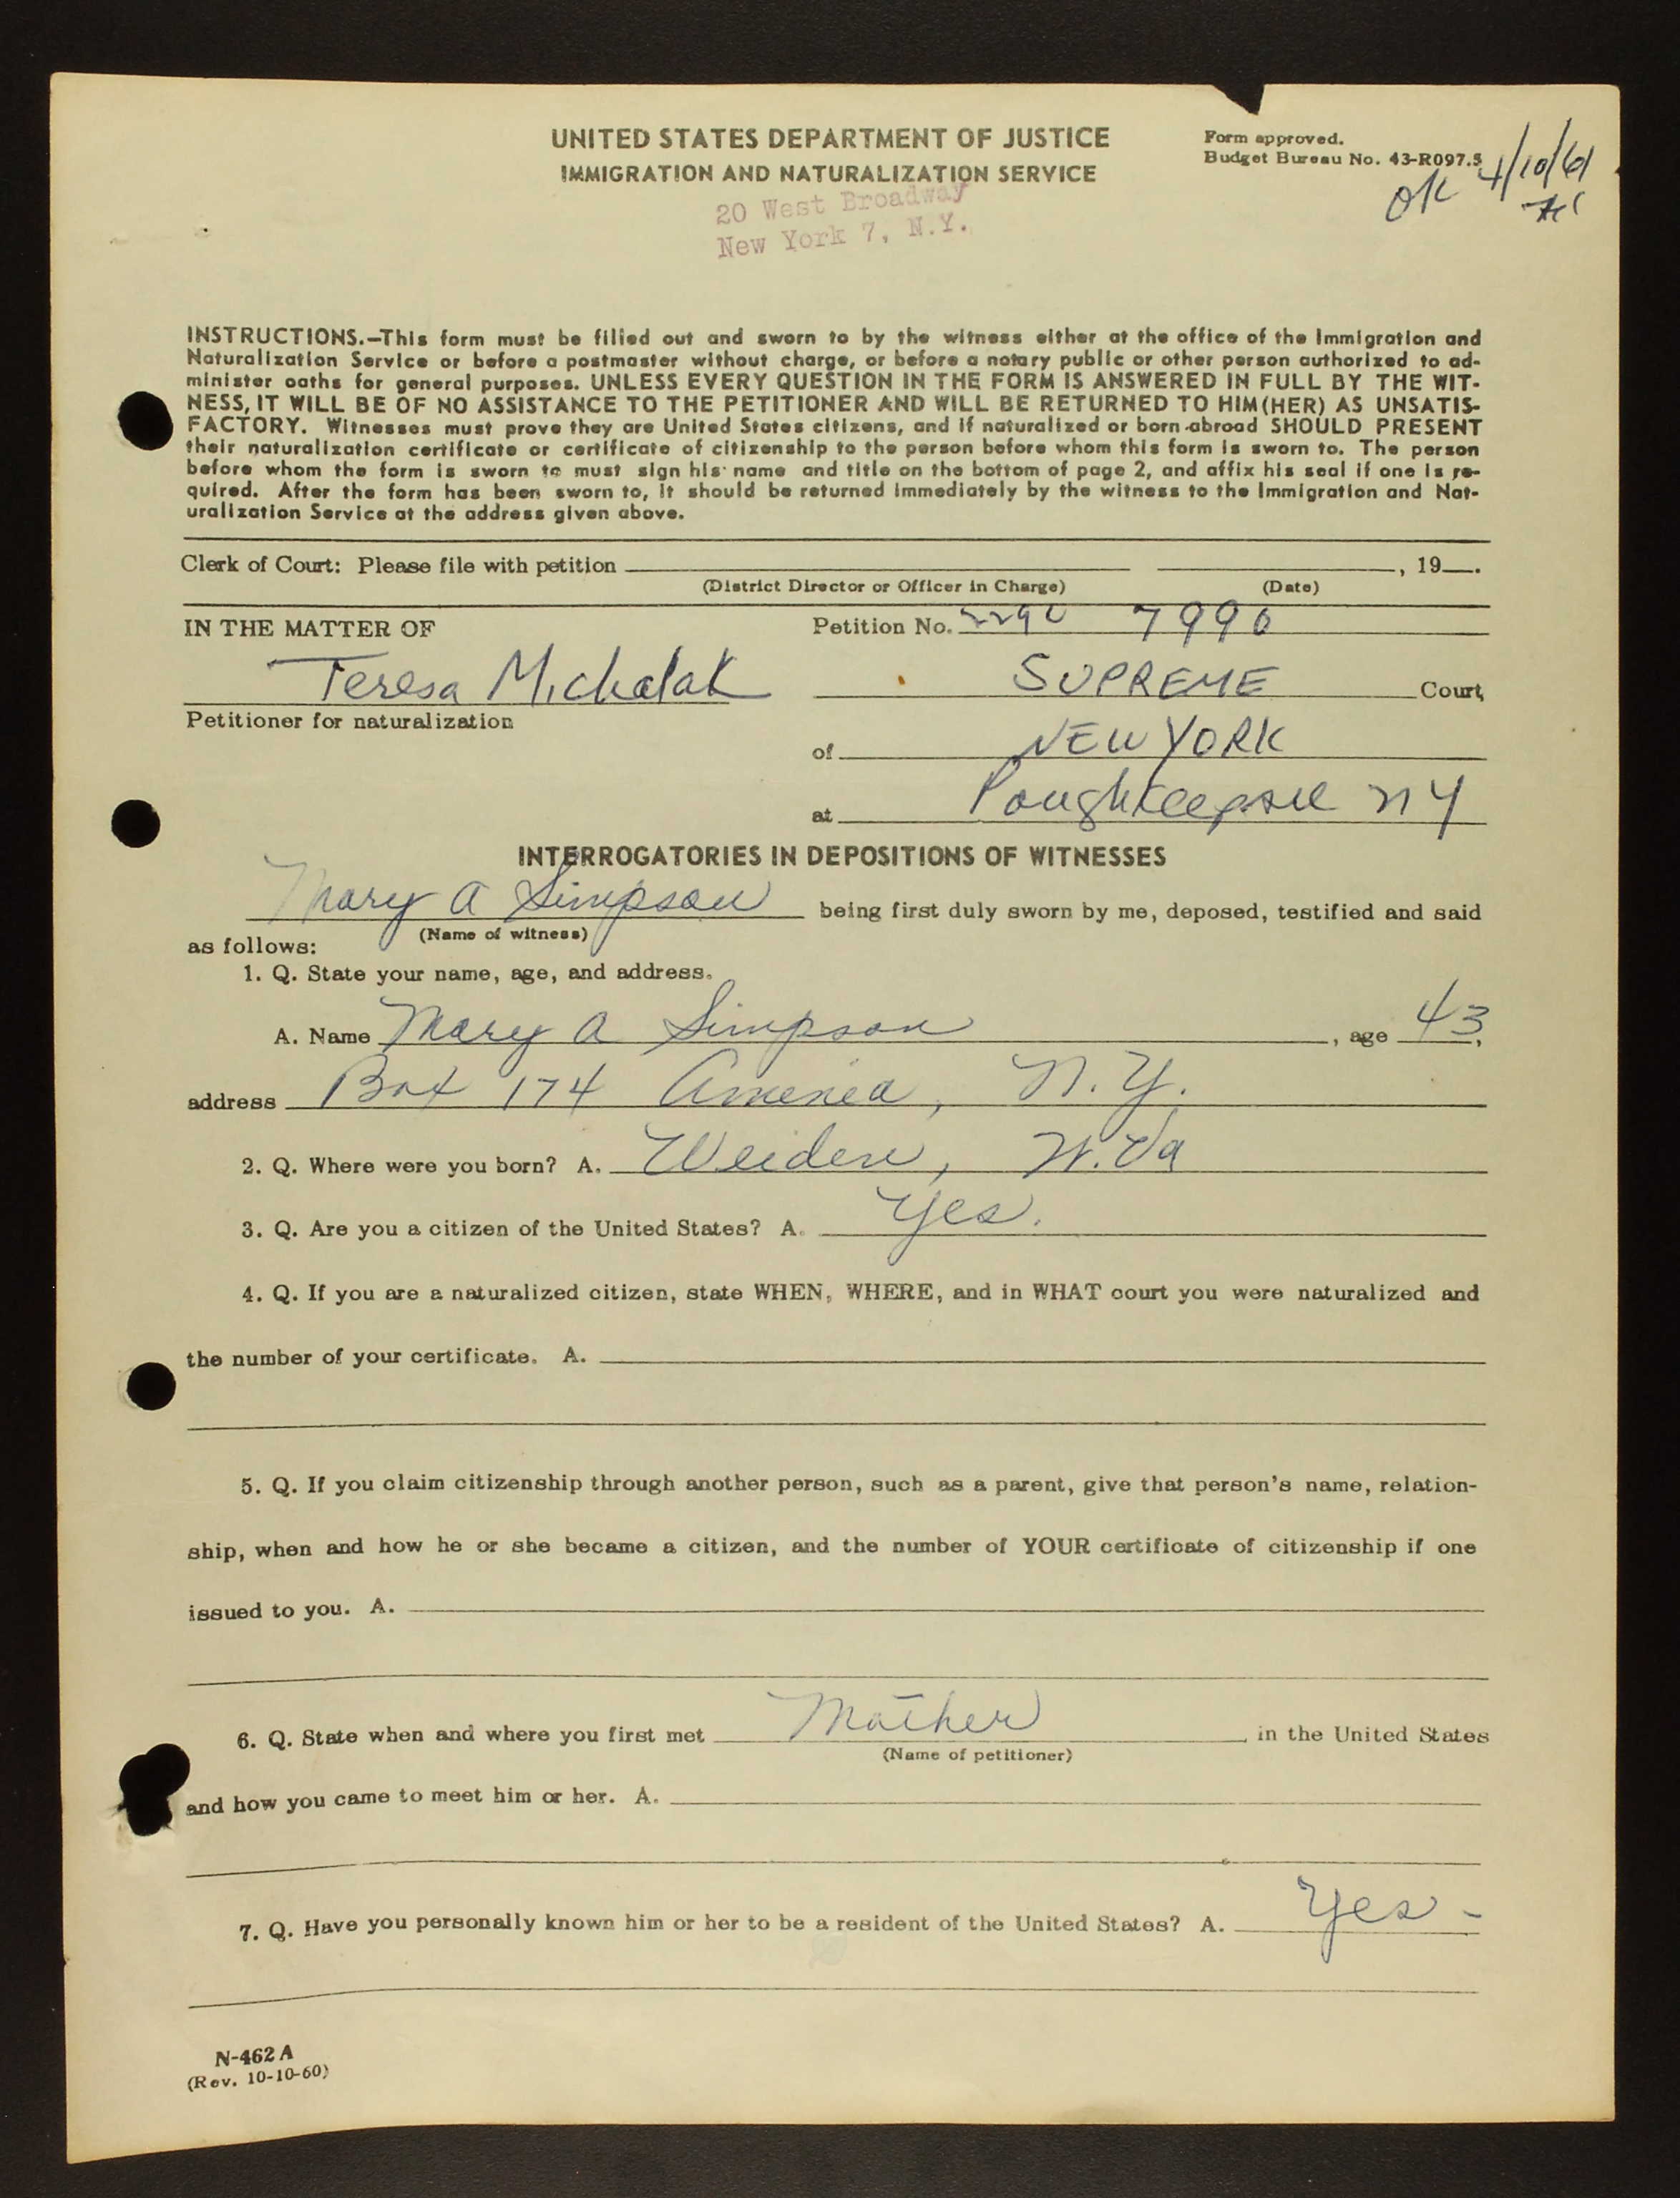 UNITED STATES DEPARTMENT OF JUSTICE
IMMIGRATION AND NATURALIZATION SERVICE
20 West Broadway
New York 7, N.Y.
Form approved.
Budget Bureau No. 43-R097.5
OK 4/10/61
INSTRUCTIONS.—This form must be filled out and sworn to by the witness either at the office of the Immigration and
Naturalization Service or before a postmaster without charge, or before a notary public or other person authorized to ad-
minister oaths for general purposes. UNLESS EVERY QUESTION IN THE FORM IS ANSWERED IN FULL BY THE WIT-
NESS, IT WILL BE OF NO ASSISTANCE TO THE PETITIONER AND WILL BE RETURNED TO HIM(HER) AS UNSATIS-
FACTORY. Witnesses must prove they are United States citizens, and if naturalized or born abroad SHOULD PRESENT
their naturalization certificate or certificate of citizenship to the person before whom this form is sworn to. The person
before whom the form is sworn to must sign his name and title on the bottom of page 2, and affix his seal if one is re-
quired. After the form has been sworn to, it should be returned immediately by the witness to the Immigration and Nat-
uralization Service at the address given above.
Clerk of Court: Please file with petition , 19 .
(District Director or Officer in Charge) (Date)
IN THE MATTER OF
Teresa Michalak
Petitioner for naturalization
Petition No. 7990
SUPREME Court
of NEW YORK
at Poughkeepsie NY
INTERROGATORIES IN DEPOSITIONS OF WITNESSES
Mary A Simpson being first duly sworn by me, deposed, testified and said
(Name of witness)
as follows:
1. Q. State your name, age, and address.
A. Name Mary A Simpson, age 43,
address Box 174 Amenia, N.Y.
2. Q. Where were you born? A. Weiden, W.Va
3. Q. Are you a citizen of the United States? A. Yes.
4. Q. If you are a naturalized citizen, state WHEN, WHERE, and in WHAT court you were naturalized and
the number of your certificate. A.
5. Q. If you claim citizenship through another person, such as a parent, give that person's name, relation-
ship, when and how he or she became a citizen, and the number of YOUR certificate of citizenship if one
issued to you. A.
6. Q. State when and where you first met Mother in the United States
(Name of petitioner)
and how you came to meet him or her. A.
7. Q. Have you personally known him or her to be a resident of the United States? A. Yes -
N-462 A
(Rev. 10-10-60)